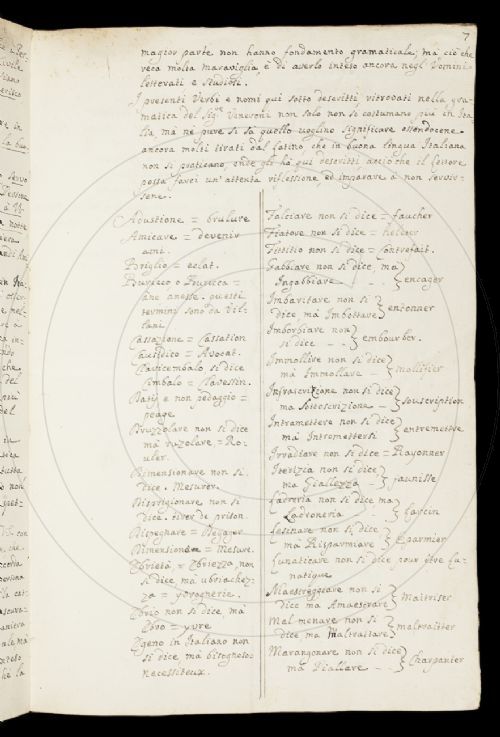 7
magior parte non hanno fondamento gramaticale; mà ciò che
reca molta maraviglia, è di averle inteso ancora negl' Uomini
letterati e studiosi.
I presenti Verbi e nomi quì sotto descritti ritrovati nella gra-
matica del Sigre Veneroni non solo non si costumano più in Ita-
lia, mà nè pure si sà quello voglino significare essendocene
ancora molti tirati dal latino che in buona lingua Italiana
non si praticano, onde gli hà quì descritti acciò che il lettore
possa farci un' attenta riflessione, ed imparare à non servir-
sene.
Adustione = brulure
Amicare = devenir
ami.
Briglio = eclat.
ane anesse. questi
termini sono da Vil-
lani
Cassazione = Cassation
Causidico = Avocat.
Clavicembalo si dice
Cimbalo = Clavessin.
Datij e non pedaggio =
peage
Druzzolare non si dice
mà ruzolare = Ro-
uler.
Dimensionare non si
dice. Mesurer.
Disprigionare non si
dice. tirer de prison
Dispegnare = Degager
Dimensione = Mesure.
Ebrietà, e Ebriezza non
si dice mà ubriachez-
za = yvrognerie.
Ebrio non si dice, mà
Ebro = yvre
Egeno in Italiano non
si dice, mà bisognoso
necessiteux.
Falciare non si dice = faucher
Fiatore non si dice =
Fittitio non si dice = contrefait.
Gabbiare non si dice, mà
Ingabbiare - - } encager
Imbavitare non si
dice mà Imbottare } entonner
Imborbiare non
si dice - - } embourber.
Immollire non si dice
mà Immollare - } mollifier
Infrascrizione non si dice
ma Sottoscrizione - } souscription
Intramettere non si dice
mà Intromettersi } entremettre
Irradiare non si dice = Rayonner
Iterizia non si dice
ma Giallezza - } jaunisse
Ladreria non si dice ma
Ladroneria - } larcin
Lesinare non si dice
mà Risparmiare } Eparmier
Lunaticare non si dice pour être Lu-
natique
Maestreggiare non si
dice ma Amaestrare } Maitriser
Mal menare non si
dice ma Maltrattare } maltraitter
Marangonare non si dice
ma Piallare - - } Charpanter